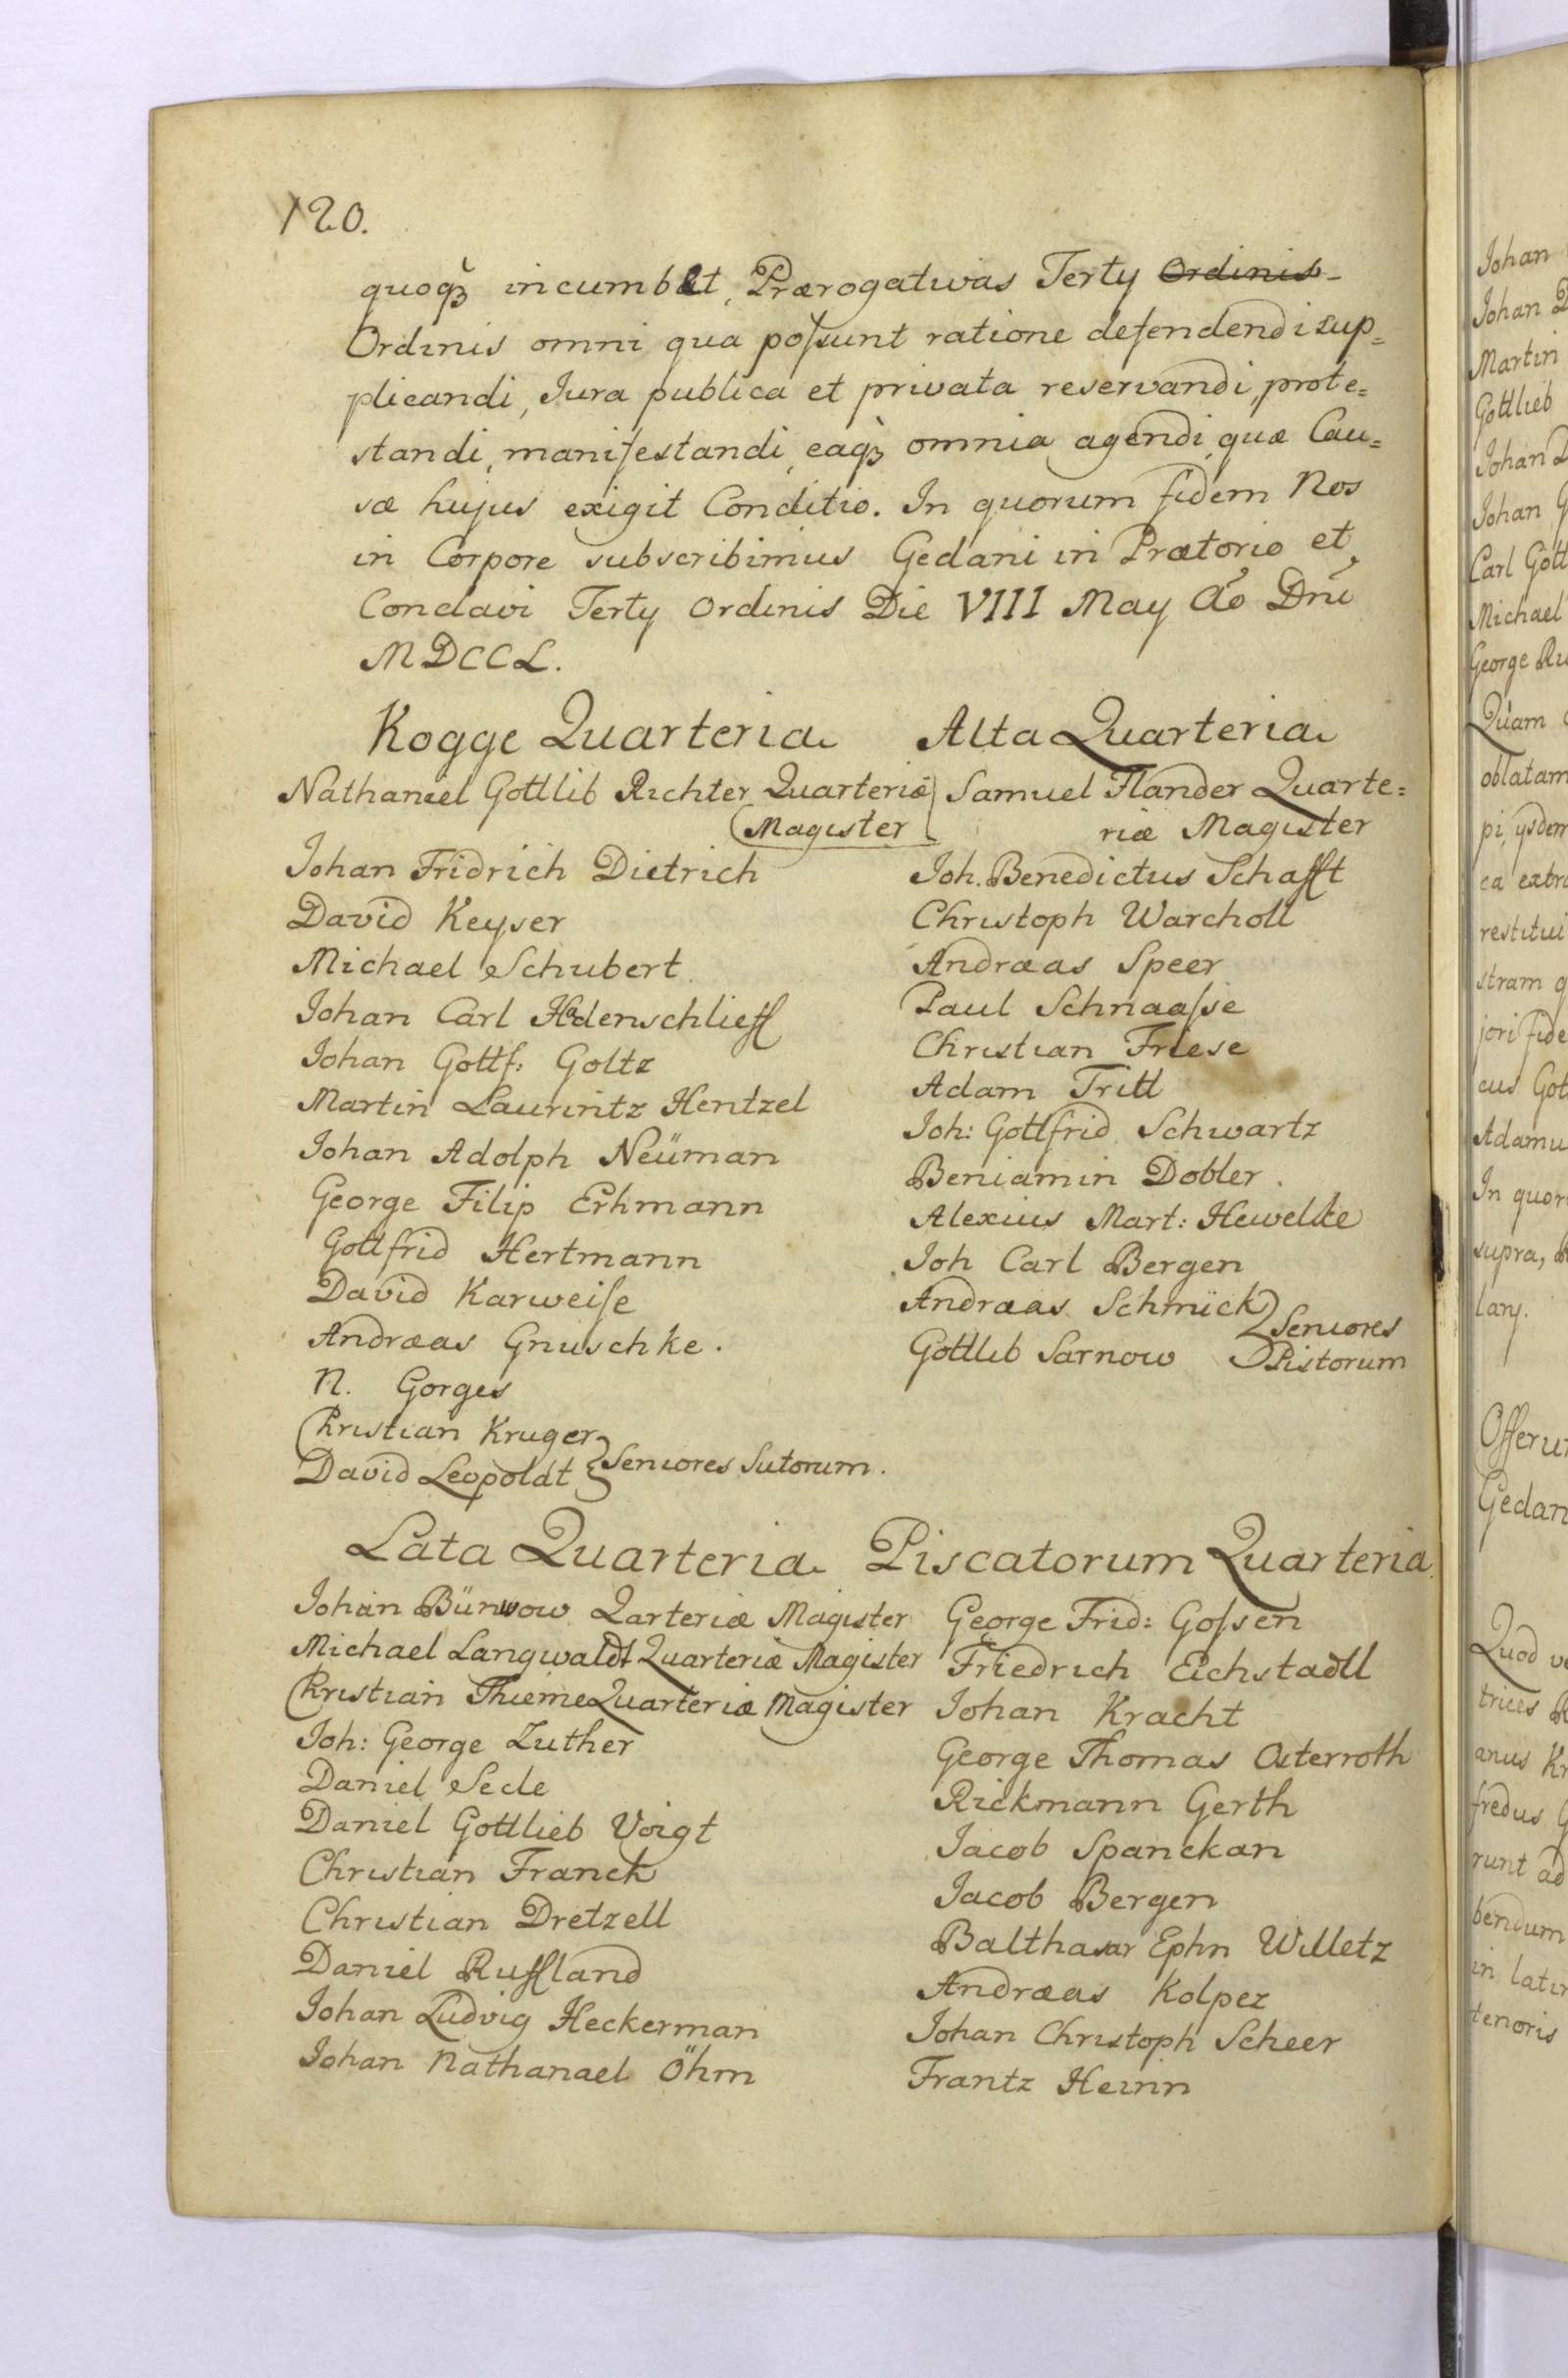 120.
quoq́ꝫ incumbet, Prærogativas Terty Ordinis
Ordinis omni qua poſsunt ratione defendendi sup=
plicandi, Jura publica et privata reservandi, prote=
standi, manifestandi, eaq́ꝫ omnia agendi, quæ Cau=
sæ hujus exigit Conditio. In quorum fidem Nos
in Corpore subscribimus Gedani in Prætorio et
Conclavi Terty Ordinis Die VIII May Aõ Dni
MDCCL.
Kogge Quarteria
Nathaniel Gottlib Richter Quarteriæ
Magister
Johan Fridrich Dietrich
David Keyser
Michael Schubert
Johan Carl Hadenschlieff
Johan Gottf: Goltz
Martin Laurintz Hentzel
Johan Adolph Neüman
George Filip Erhmann
Gottfrid Hertmann
David Karweiſe
Andræas Gnuschke.
N. Gorges
Christian Kruger
David Leopoldt } Seniores Sutorum.
Alta Quarteria
Samuel Flander Quarte=
riæ Magister
Joh. Benedictus Schafft
Christoph Warcholl
Andræas Speer
Paul Schnaaſse
Christian Friese
Adam Tritt
Joh: Gottfrid Schwartz
Beniamin Dobler.
Alexius Mart: Hewelke
Joh Carl Bergen
Andræas Schmück } Seniores
Gottlib Sarnow } Pistorum
Lata Quarteria
Johan Bünsow Qarteriæ Magister
Michael Langwaldt Quarteriæ Magister
Christian Thieme Quarteriæ Magister
Joh: George Luther
Daniel Sede
Daniel Gottlieb Voigt
Christian Franck
Christian Dretzell
Daniel Ruffland
Johan Ludvig Heckerman
Johan Nathanael Öhm
Piscatorum Quarteria.
George Frid: Goſsen
Friedrich Eichstadtt
Johan Kracht
George Thomas Osterroth
Rickmann Gerth
Jacob Spanckan
Jacob Bergen
Balthasar Ephn Willetz
Andræas Kolpez
Johan Christoph Scheer
Frantz Heinn
Johan
Johan
Martin
Gottlieb
Johan
Johan
Carl Gott
Michael
George
Quam
oblatam
pi, ysdem
ea extra
restitui
stram q
jori fide
cus Got
Adamu
In quor
supra,
lany.
Offerun
Gedan
Quod ve
trices
anus Kr
fredus G
runt ad
bendum
in latin
tenoris